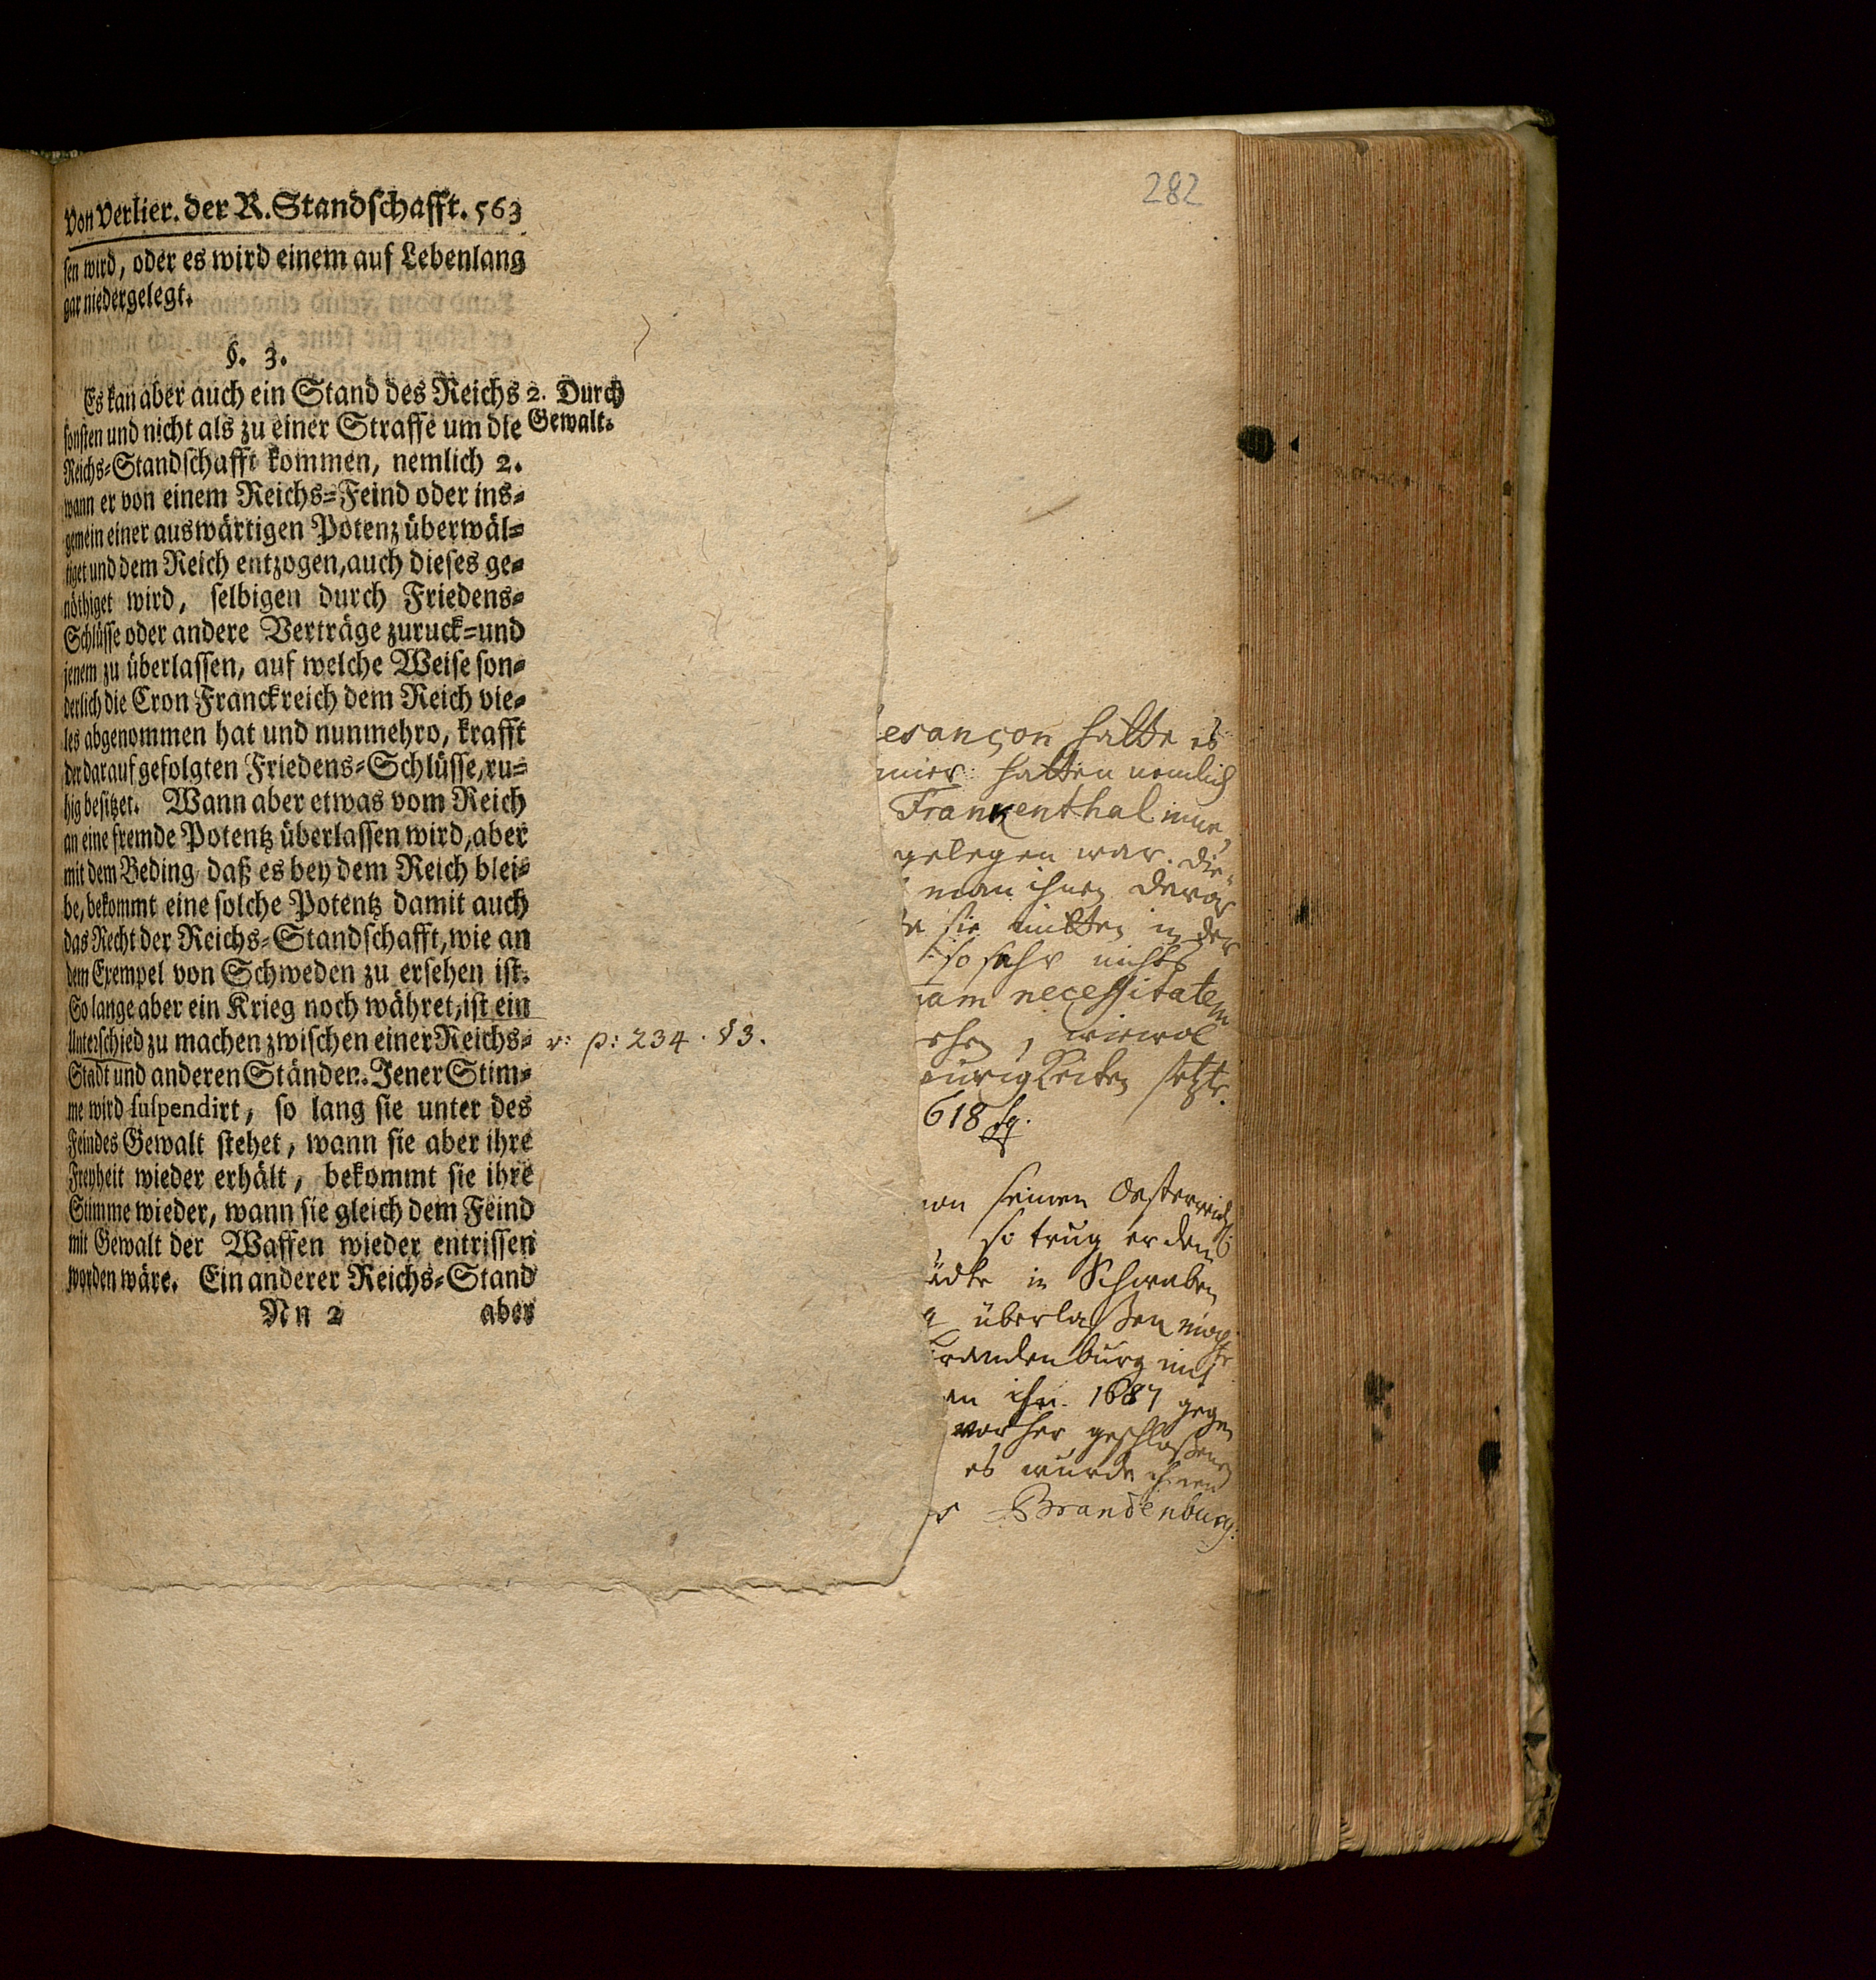 282
Von Verlier. der R. Standschafft. 563
sen wird, oder es wird einem auf Lebenlang
gar niedergelegt.
§. 3.
Es kan aber auch ein Stand des Reichs
sonsten und nicht als zu einer Straffe um die
Reichs-Standschafft kommen, nemlich 2.
wann er von einem Reichs-Feind oder ins-
gemein einer auswärtigen Potenz überwäl-
tiget und dem Reich entzogen, auch dieses ge-
nöthiget wird, selbigen durch Friedens-
Schlüsse oder andere Verträge zuruck- und
jenem zu überlassen, auf welche Weise son-
derlich die Cron Franckreich dem Reich vie-
les abgenommen hat und nunmehro, krafft
der darauf gefolgten Friedens-Schlüsse, ru-
hig besitzet. Wann aber etwas vom Reich
an eine fremde Potentz überlassen wird, aber
mit dem Beding, daß es bey dem Reich blei-
be, bekommt eine solche Potentz damit auch
das Recht der Reichs-Standschafft, wie an
dem Exempel von Schweden zu ersehen ist.
So lange aber ein Krieg noch währet, ist ein
Unterschied zu machen zwischen einer Reichs-
Stadt und anderen Ständen. Jener Stim-
me wird suspendirt, so lang sie unter des
Feindes Gewalt stehet, wann sie aber ihre
Freyheit wieder erhält, bekommt sie ihre
Stimme wieder, wann sie gleich dem Feind
mit Gewalt der Waffen wieder entrissen
worden wäre. Ein anderer Reichs-Stand
Nn 2 aber
2. Durch
Gewalt.
v: p: 234. §3.
esançon hatte es
mier: hatten nemlich
Frankenthal inne
gelegen war. die
man ihnen davor
sie mitten in der
so sehr nichts
iam necessitatem
ehen, wiewol
aurigkeiten setzte.
618 sq.
von seinen Oesterreich
so trug er den
ädte in Schwaben
überlaßen möchte
randenburg mit
en ihn. 1687 gegen
vorher geschloßenen
es wurde ihnen
r Brandenburg: